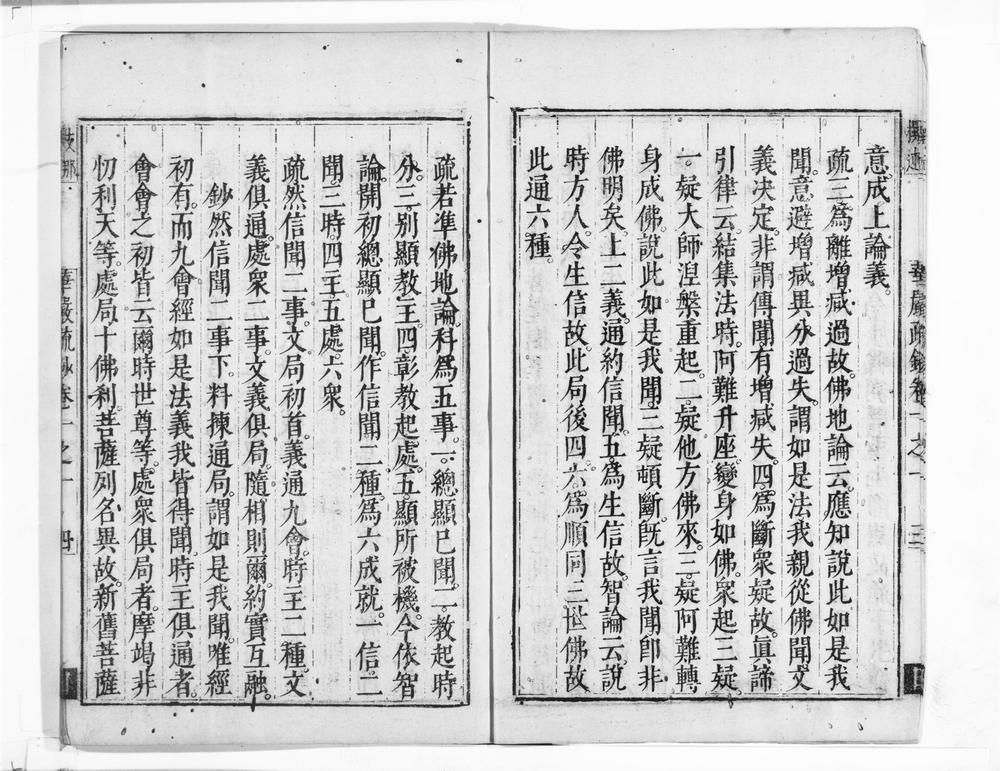 意。成上論義。
疏三爲離增減過故佛地論云。應知說此如是我
聞。意避增減異分過失。謂如是法我親從佛聞。文
義決定。非謂傳聞有增減失。四爲斷衆疑故。眞諦
引律云。結集法時。阿難升座。變身如佛。衆起三疑。
一。疑大師涅槃重起。二。疑他方佛來。三。疑阿難轉
身成佛。說此如是我聞。三疑頓斷。旣言我聞。卽非
佛明矣。上二義。通約信聞。五。爲生信故。智論云。說
時方人。令生信故。此局後四。六。爲順同三世佛故。
此通六種。
華嚴疏鈔卷一之一
三
疏若準佛地論。科爲五事。一。總顯已聞。二。教起時
分。三。別顯教主。四彰教起處。五顯所被機。今依智
論。開初總顯已聞。作信聞二種。爲六成就。一信。二
聞。三時。四主。五處。六衆。
疏然信聞二事。文局初首。義通九會。時主二種。文
義俱通。處衆二事。文義俱局。隨相則爾。約實互融。
鈔然信聞二事下。料揀通局。謂如是我聞。唯經
初有。而九會。經如是法義。我皆得聞。時主俱通者。
會會之初。皆云爾時世尊等。處衆俱局者。摩竭非
忉利天等處局。十佛刹。菩薩列名異故。新舊菩薩
華嚴疏鈔卷一之一
四